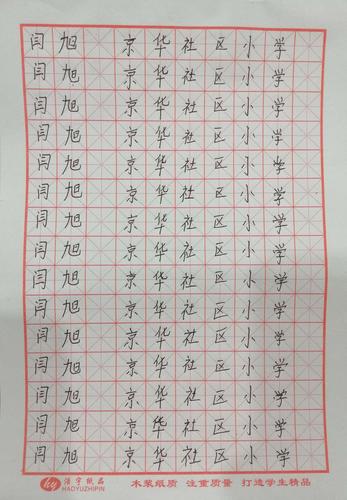 闫旭 京华社区小学
闫旭 京华社区小学
闫旭 京华社区小学
闫旭 京华社区小学
闫旭 京华社区小学
闫旭 京华社区小学
闫旭 京华社区小学
闫旭 京华社区小学
闫旭 京华社区小学
闫旭 京华社区小学
闫旭 京华社区小学
闫旭 京华社区小学
闫旭 京华社区小学
闫旭 京华社区小学
闫旭 京华社区小学
hy 浩宇纸品 木浆纸质 注重质量 打造学生精品
HAOYUZHIPIN